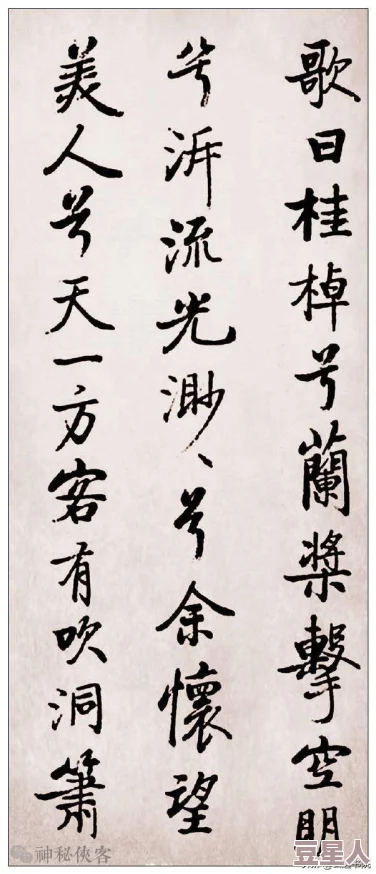 歌曰桂棹兮蘭槳擊空明
兮泝流光渺々兮余懷望
美人兮天一方客有吹洞簫
神秘俠客
豆星人